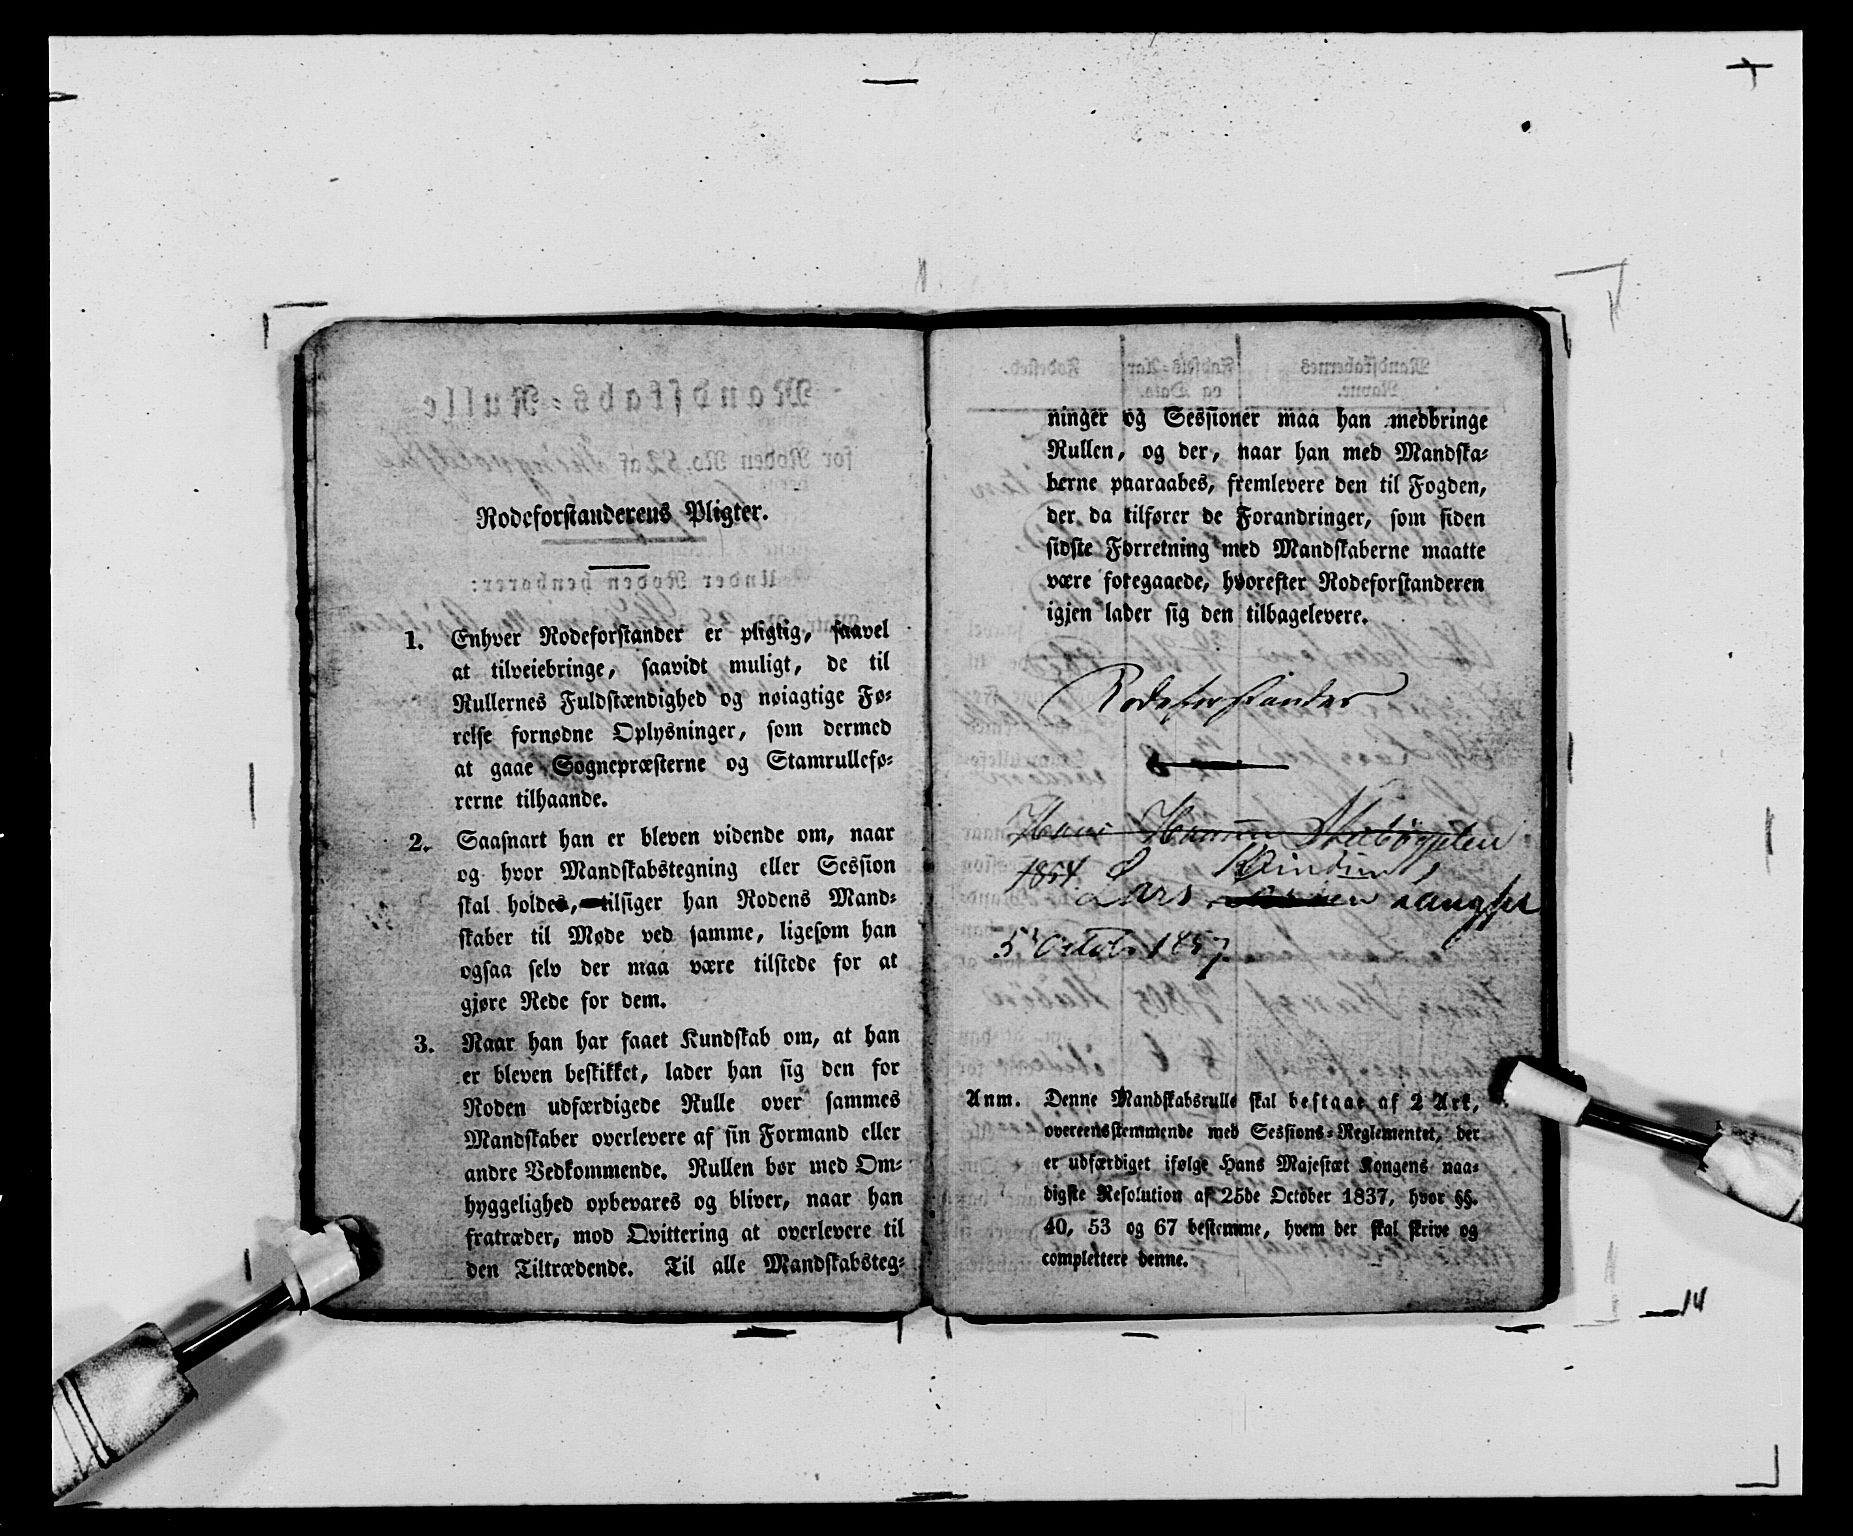 Rodeforstanderens Pligter.
1. Enhver Rodeforstander er pligtig, saavel
at tilveiebringe, saavidt muligt, de til
Rullernes Fuldstændighed og nøiagtige Fø-
relse fornødne Oplysninger, som dermed
at gaae Sognepræsterne og Stamrullefø-
rerne tilhaande.
2. Saasnart han er bleven vidende om, naar
og hvor Mandskabstegning eller Session
skal holdes, tilsiger han Rodens Mand-
skaber til Møde ved samme, ligesom han
ogsaa selv der maa være tilstede for at
gjøre Rede for dem.
3. Naar han har faaet Kundskab om, at han
er bleven beskikket, lader han sig den for
Roden udfærdigede Rulle over sammes
Mandskaber overlevere af sin Formand eller
andre Vedkommende. Rullen bør med Om-
hyggelighed opbevares og bliver, naar han
fratræder, mod Qvittering at overlevere til
den Tiltrædende. Til alle Mandskabsteg-
ninger og Sessioner maa han medbringe
Rullen, og der, naar han med Mandska-
berne paaraabes, fremlevere den til Fogden,
der da tilfører de Forandringer, som siden
sidste Forretning med Mandskaberne maatte
være foregaaede, hvorefter Rodeforstanderen
igjen lader sig den tilbagelevere.
Rodeforstander
1854. Lars
5' Octobr 1857
Anm. Denne Mandskabsrulle skal bestaae af 2 Ark,
overeensstemmende med Sessions-Reglementet, der
er udfærdiget ifølge Hans Majestæt Kongens naa-
digste Resolution af 25de October 1837, hvor §§.
40, 53 og 67 bestemme, hvem der skal skrive og
complettere denne.
14